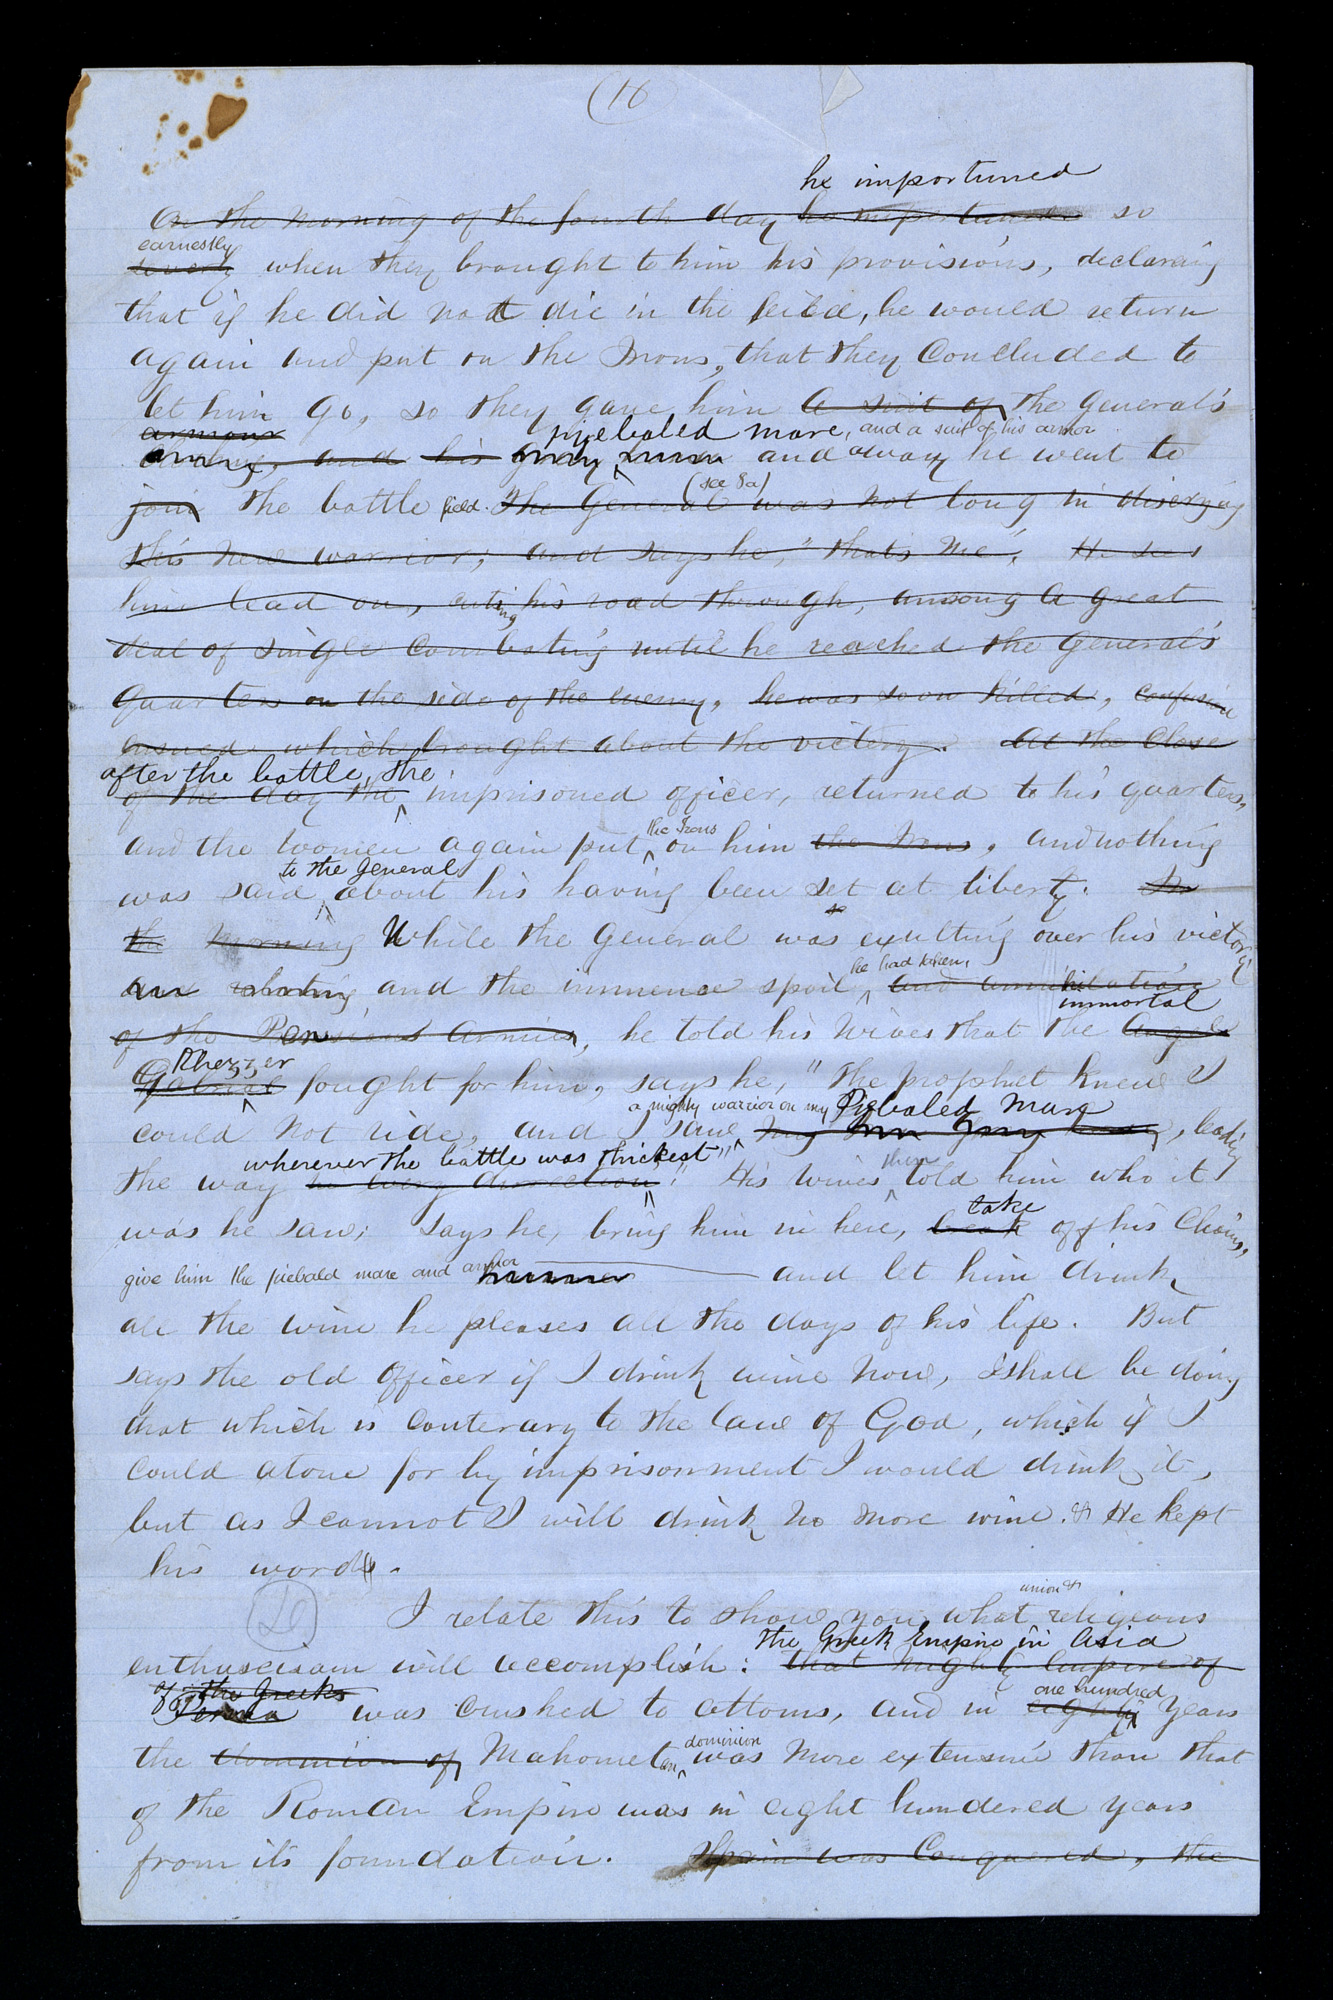 (16
he importuned
On the morning of the fourth day he importuned so
earnestly
when they brought to him his provisions, declaring
that if he did not die in the field, he would return
again and put on the Irons, that they Concluded to
let him go, so they gave him a suit of the General's
armour
piebaled mare, and a suit of his armor
and his gray and away he went to
(see 8a)
join the battle field. The General was not long in discrying
this new warrior, and says he, "that's me". He sees
him lead on, cuting his road through, among a great
deal of single Combating until he reached the General's
quarters on the side of the enemy, he was soon killed, confusion
ensued which brought about the victory. At the Close
after the battle, the
of the day the imprisoned officer, returned to his quarters,
the Irons
and the women again put on him the Irons, and nothing
to the General
was said about his having been set at liberty. In
the morning While the General was exulting over his victory
he had taken,
and relating and the immence spoil and annihilation
immortal
of the Persians armies, he told his Wives that the Angel
Khezzer
Gabrial fought for him, says he, "the prophet knew I
a mighty warrior on my Piebaled Mare
could not ride, and I saw my gray, leading
wherever the battle was thickest"
the way in every direction". His wives then told him who it
take
was he saw; says he, bring him in here, break off his Chains,
give him the piebald mare and armor and let him drink
all the wine he pleases all the days of his life. But
says the old officer if I drink wine now, I shall be doing
that which is Conterary to the law of God, which if I
could atone for by imprisonment I would drink it,
but as I cannot I will drink no more wine. & He kept
his word.
union &
I relate this to show you what religious
The Greek Empire in Asia
enthuseisam will accomplish: that mighty Empire of
of the Greeks
one hundred
Persia was crushed to attoms, and in eighty years
dominion
the dominion of Mahometan was more extensive than that
of the Roman Empire was in eight hundered years
from its foundation. Spain was Conquered, the